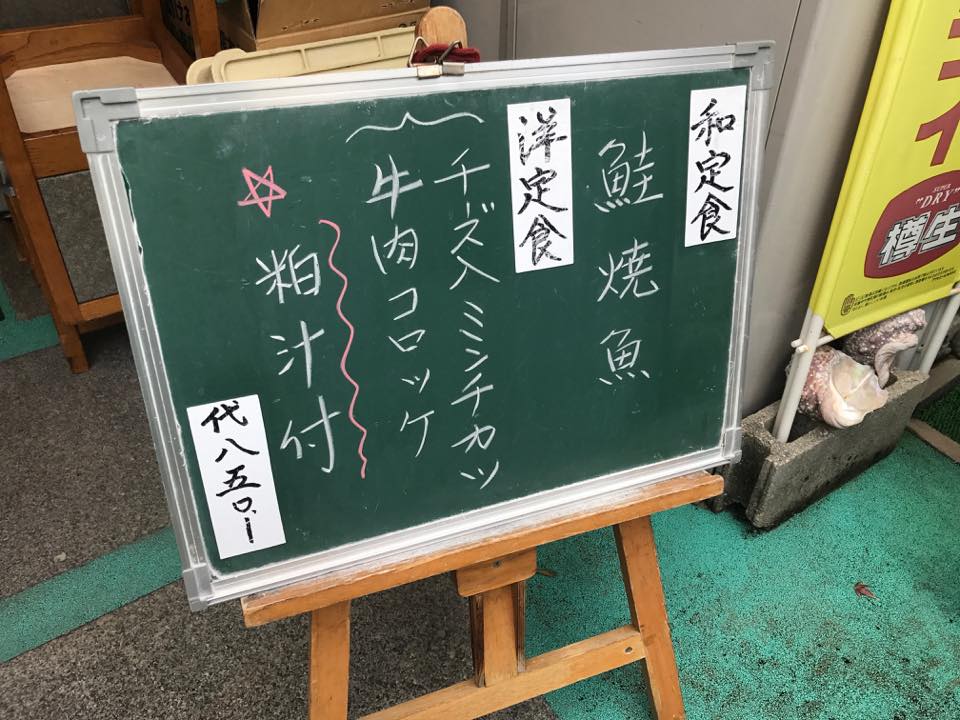 和定食
鮭焼魚
洋定食
チーズ入ミミンチカツ
牛肉コロッケ
粕汁付
代八五〇.ー
SUPER
"DRY"
樽生